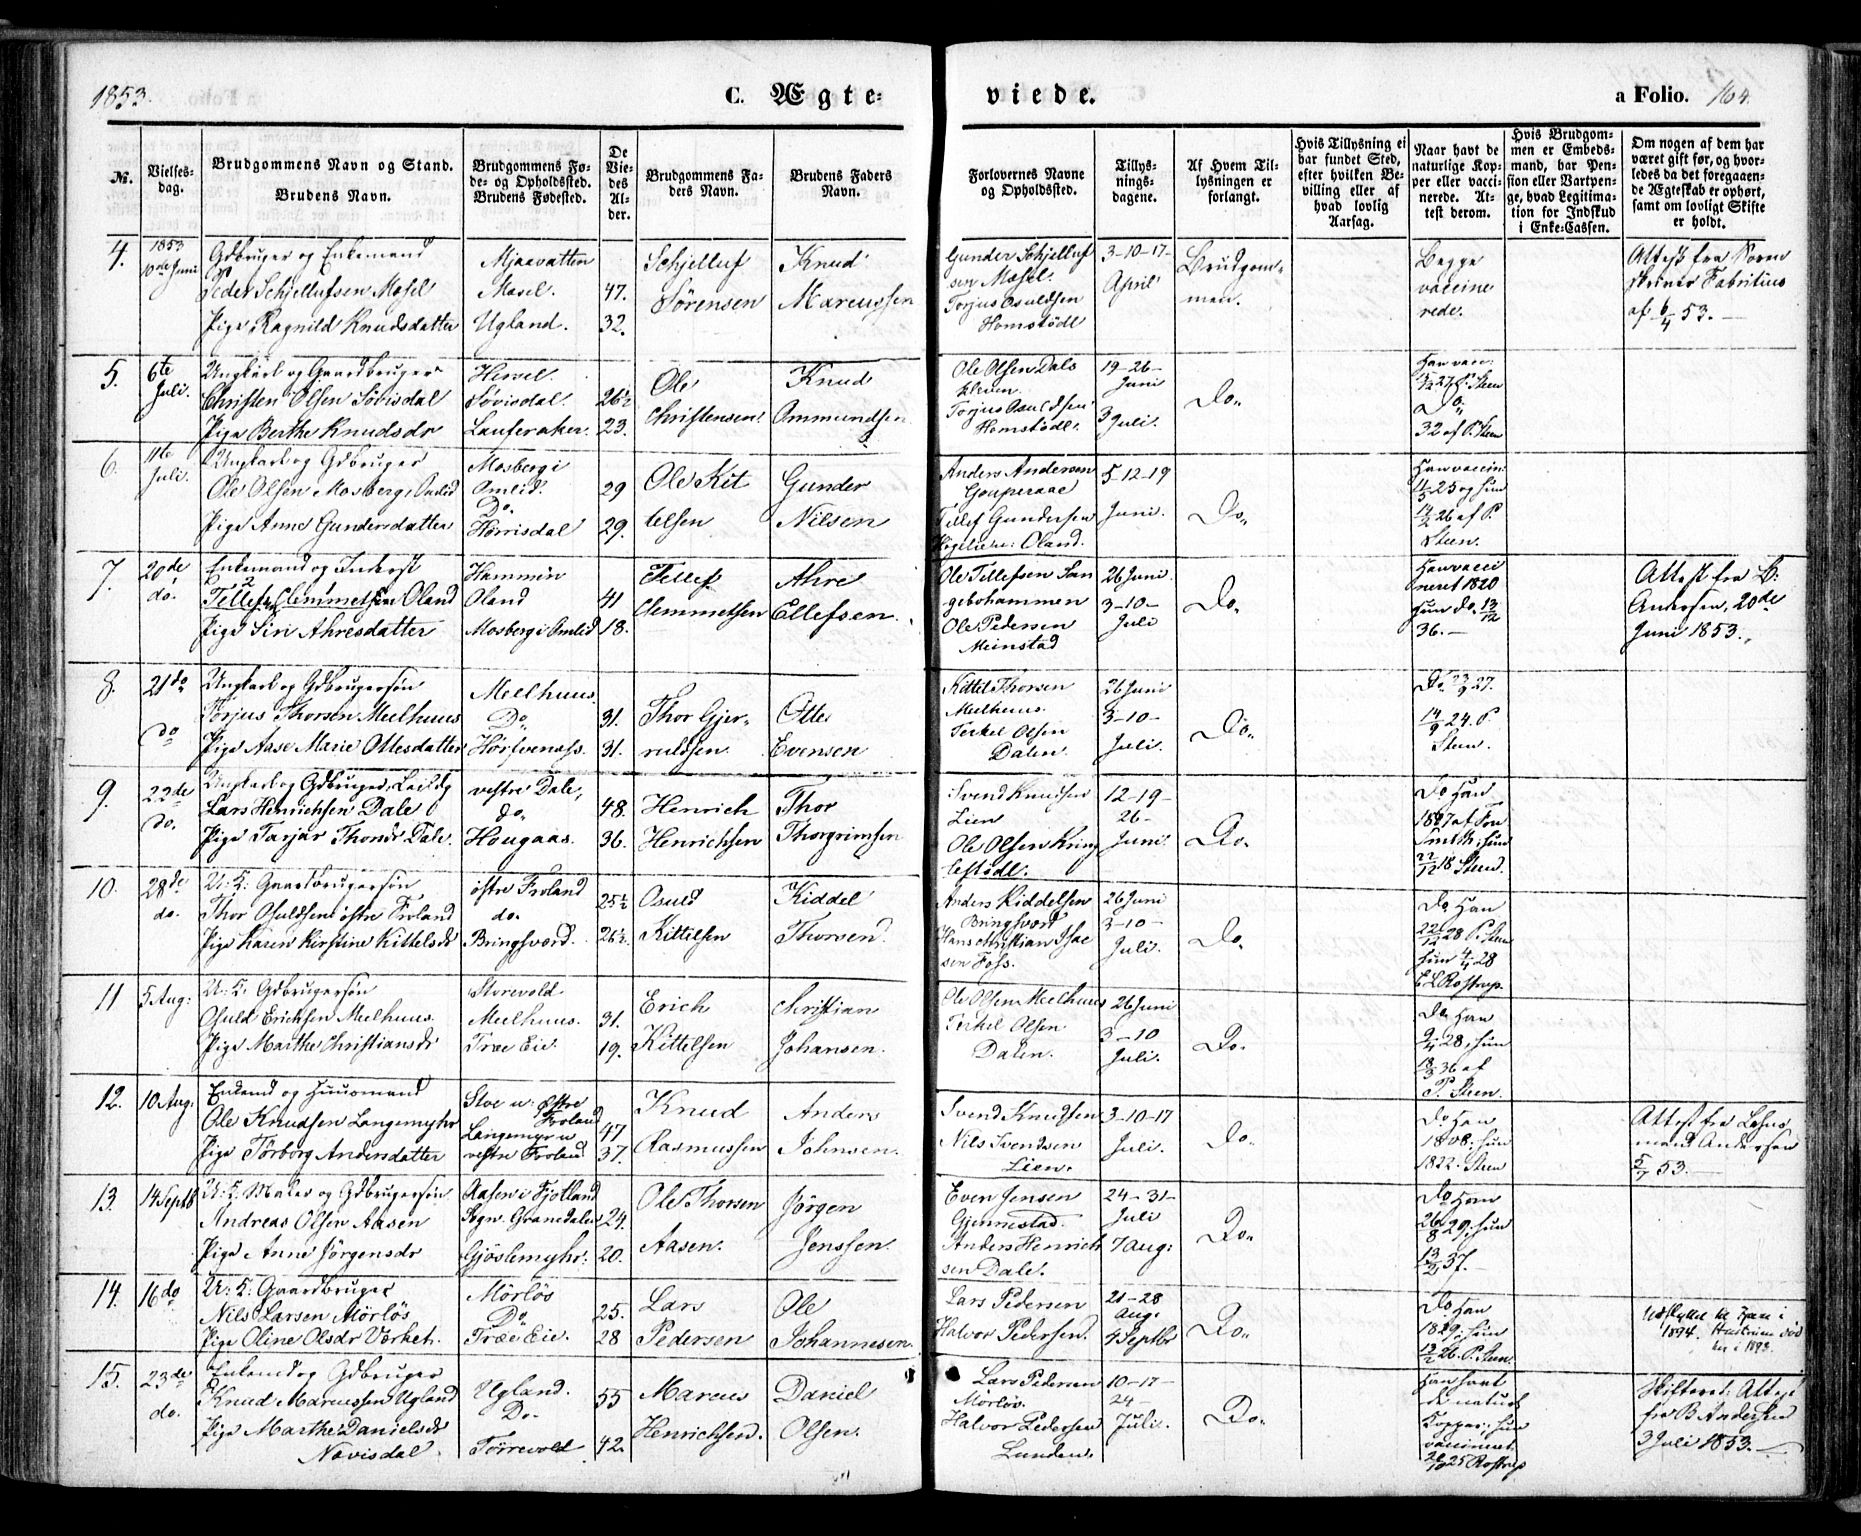 1853.
C. Ægte-
viede.
a Folio. 164.
No.
Vielses-
dag.
Brudgommens Navn og Stand.
Brudens Navn.
Brudgommens Fø-
de- og Opholdssted.
Brudens Fødested.
De
Vie-
des
Al-
der.
Brudgommens Fa-
ders Navn.
Brudens Faders
Navn.
Forlovernes Navne
og Opholdssted.
Tillys-
nings-
dagene.
Af Hvem Til-
lysningen er
forlangt.
Hvis Tillysning ei
har fundet Sted,
efter hvilken Be-
villing eller af
hvad lovlig
Aarsag.
Naar havt de
naturlige Kop-
per eller vacci-
nerede. At-
test derom.
Hvis Brudgom-
men er Embeds-
mand, har Pen-
sion eller Vartpen-
ge, hvad Legitima-
tion for Indskud
i Enke-Cassen.
Om nogen af dem har
været gift før, og hvor-
ledes da det foregaaen-
de Ægteskab er ophørt,
samt om lovligt Skifte
er holdt.
4.
1853
10de Juni
Gdbruger og Enkemand
Peder Schjellufsen Mosel
Pige Ragnild Knudsdatter
Mjaavatten
Mosel.
Ugland.
47.
32.
Schjelluf
Sörensen
Knud
Marcussen
Gunder Schjelluf
sen Mosel.
Torjus Osuldsen
Homstödl
3-10-17-
April
Brudgom-
men.
Begge
vaccine
rede.
Attest fra Soren
skriver Fabritius
af 6/4 53. —
5.
6te
Juli.
Ungkarl og Gaardbruger
Christen Olsen Sövisdal
Pige Berthe Knudsdr
Hersel.
Sövisdal.
Lauferaker.
26½
23.
Ole
Christensen.
Knud
Ommundsen
Ole Olsen Dals
Torjus Osuldsen
Homstödl.
19-26-
Juni
3 Juli.
Do.
Han vacc:
27 P. Steen
Do
32 af P. Steen
6.
11te
Juli.
Ungkarl og Gdbruger
Ole Olsen Mosberg i Omlid
Pige Anne Gundersdatter
Mosberg i
Omlid.
Do.
Hörrisdal
29
29.
Ole Kit
telsen
Gunder
Nilsen
Anders Andersen
Gouperaae
Tellef Gundersen
Oland.
5-12-19
Juni.
Do.
Han vaccin:
25 og hun
26 af P.
Steen.
7.
20de
do.
Enkemand og Inderst
Tellef Clemmetsen Oland
Pige Siri Ahresdatter
Hammen
Oland
Mosberg i Omlid
41
18.
Tellef
Clemmetsen
Ahre
Ellefsen.
Ole Tellefsen San
gebohammen
Ole Pedersen
Meinstad
26 Juni
3-10-
Juli
Do.
Han vacci
neret 1820
hun do. 13/12
36. —
Attest fra B:
Andersen, 20de
Juni 1853.
8.
21do
do
Ungkarl og Gdbrugersön
Torjus Thorsen Meelhuus
Pige Aase Marie Ottesdatter
Meelhuus.
Do.
31.
31.
Thor Gjer-
ruldsen
Otte
Evensen
Kittel Thorsen
Meelhuus.
Terkel Olsen
Dalen.
26 Juni
3-10-
Juli.
Do.
Do. 23/9 27.
14/9 24. P
Steen.
9.
22de
do.
Ungkarl og Gdbruger,
Lars Henrichsen Dale
Pige Tarjar Thorsdr Dale.
vestre Dale,
do.
Hougaas.
48.
36.
Henrich
Henrichsen
Thor
Thorgrimsen
Svend Knudsen
Lien
Ole Olsen Kring
lestödl.
12-19-
26-
Juni.
Do.
Do Han
1807 af
Smith; hun
18 Steen.
10.
28de
do.
U: K: Gaardbrugersön
Thor Osuldsen östre Froland
Pige Karen Kirstine Kittelsdr
östre Froland
do.
Bringsvord.
25½
26½.
Osuld
Kittelsen
Kiddel
Thorsen.
Anders Kiddelsen
Bringsvord
Hans Christian Isac
sen Foss.
26 Juni
3-10-
Juli.
Do.
Do Han
22/12 28 P. Steen
hun 4/4 28
Rostrup.
11
5 Aug:
U: K: Gdbrugersön
Osuld Erichsen Meelhuus.
Pige Marthe Christiansdr
Storevold
Meelhuus.
Træe Eie.
31.
19.
Erich
Kittelsen
Christian
Johansen.
Ole Olsen Meelhuus
Terkel Olsen
Dalen.
26 Juni
3-10
Juli.
Do.
Do Han
9/4 28, hun
36 af
P. Steen.
12.
10 Aug:
Enkemd og Huusmand
Ole Knudsen Langemyhr
Pige Torborg Andersdatter
Stoe u: östre
Froland
Langemyr u
vestre Froland
47
37.
Knud
Rasmussen
Anders
Johnsen.
Svend Knudsen
Nils Svendsen
Lien.
3-10-17
Juli.
Do.
Do Han
1808; hun
1822. Steen
Attest fra Lehns
mand Andersen
5/7 53. —
13.
14 Septb
U: K: Maler og Gdbrugersön
Andreas Olsen Aasen
Pige Anne Jörgensdr
Aasen i Fjotland
Sogn. Granedalen
Gjöslemyhr.
24.
20.
Ole Thorsen
Aasen.
Jörgen
Jenssen.
Even Jensen
Gjennestad.
Anders Henrich
sen Dale.
24-31-
Juli
7 Aug:
Do.
Do Han
26/8 29; hun
37. —
14.
16do
U: K: Gaardbruger
Nils Larsen Mörlös
Pige Oline Olsdr Værket.
Mörlös
Do
Træe Eie.
25.
28
Lars
Pedersen
Ole
Johannesen.
Lars Pedersen
Halvor Pedersen.
21-28
Aug:
4 Septbr
Do.
Do Han
1829; hun
26. P. Steen.
1894. Hustruen död
her i 1893.
15.
23de
do.
Enkemd og Gdbruger
Knud Marcussen Ugland
Pige Marthe Danielsdr
Novisdal.
Ugland.
Do.
Torrevold
55
42.
Marcus
Henrichsen.
Daniel
Olsen.
Lars Pedersen
Mörlös.
Halvor Pedersen
Lunden.
10-17-
24-
Juli.
Do.
Han havt
de naturl
Kopper; hun
vaccineret
25 Rostrup
Skifteret: Attest
fra B Andersen
3 Juli 1853. —